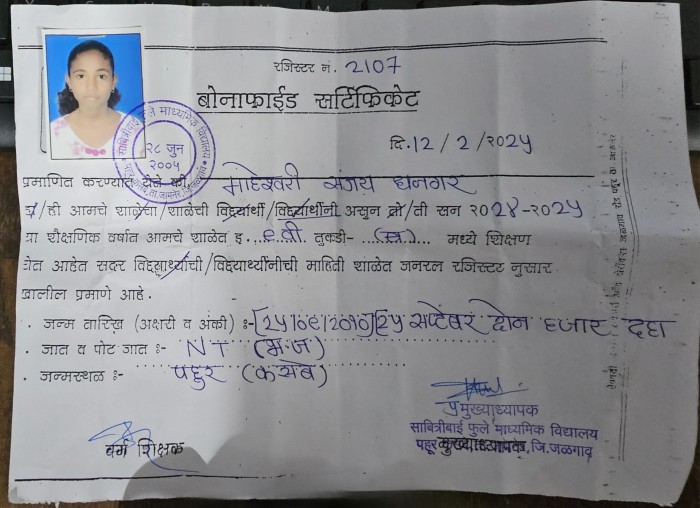 रजिस्टर नं. 2107
बोनाफाईड सर्टिफिकेट
दि. 12/2/२०२५
सावित्रीबाई फुले माध्यमिक विद्यालय
२८ जुन
२००५
प्रमाणित करण्यात येते की, माहेश्वरी संजय धनगर
हा/ही आमचे शाळेचा/शाळेची विद्यार्थी/विद्यार्थीनी असुन तो/ती सन २०२४-२०२५
या शैक्षणिक वर्षात आमचे शाळेत इ. ९ वी तुकडी- (ब) मध्ये शिक्षण
घेत आहेत सदर विद्यार्थ्याची/विद्यार्थीनीची माहिती शाळेत जनरल रजिस्टर नुसार
खालील प्रमाणे आहे.
. जन्म तारिख (अक्षरी व अंकी) :- [२५/०९/२०१०] २५ सप्टेंबर दोन हजार दहा
. जात व पोट जात :- NT (भ.ज)
. जन्मस्थळ :- पहूर (कसबे)
वर्ग शिक्षक
प्रमुख्याध्यापक
सावित्रीबाई फुले माध्यमिक विद्यालय
पहूर ,जि.जळगाव